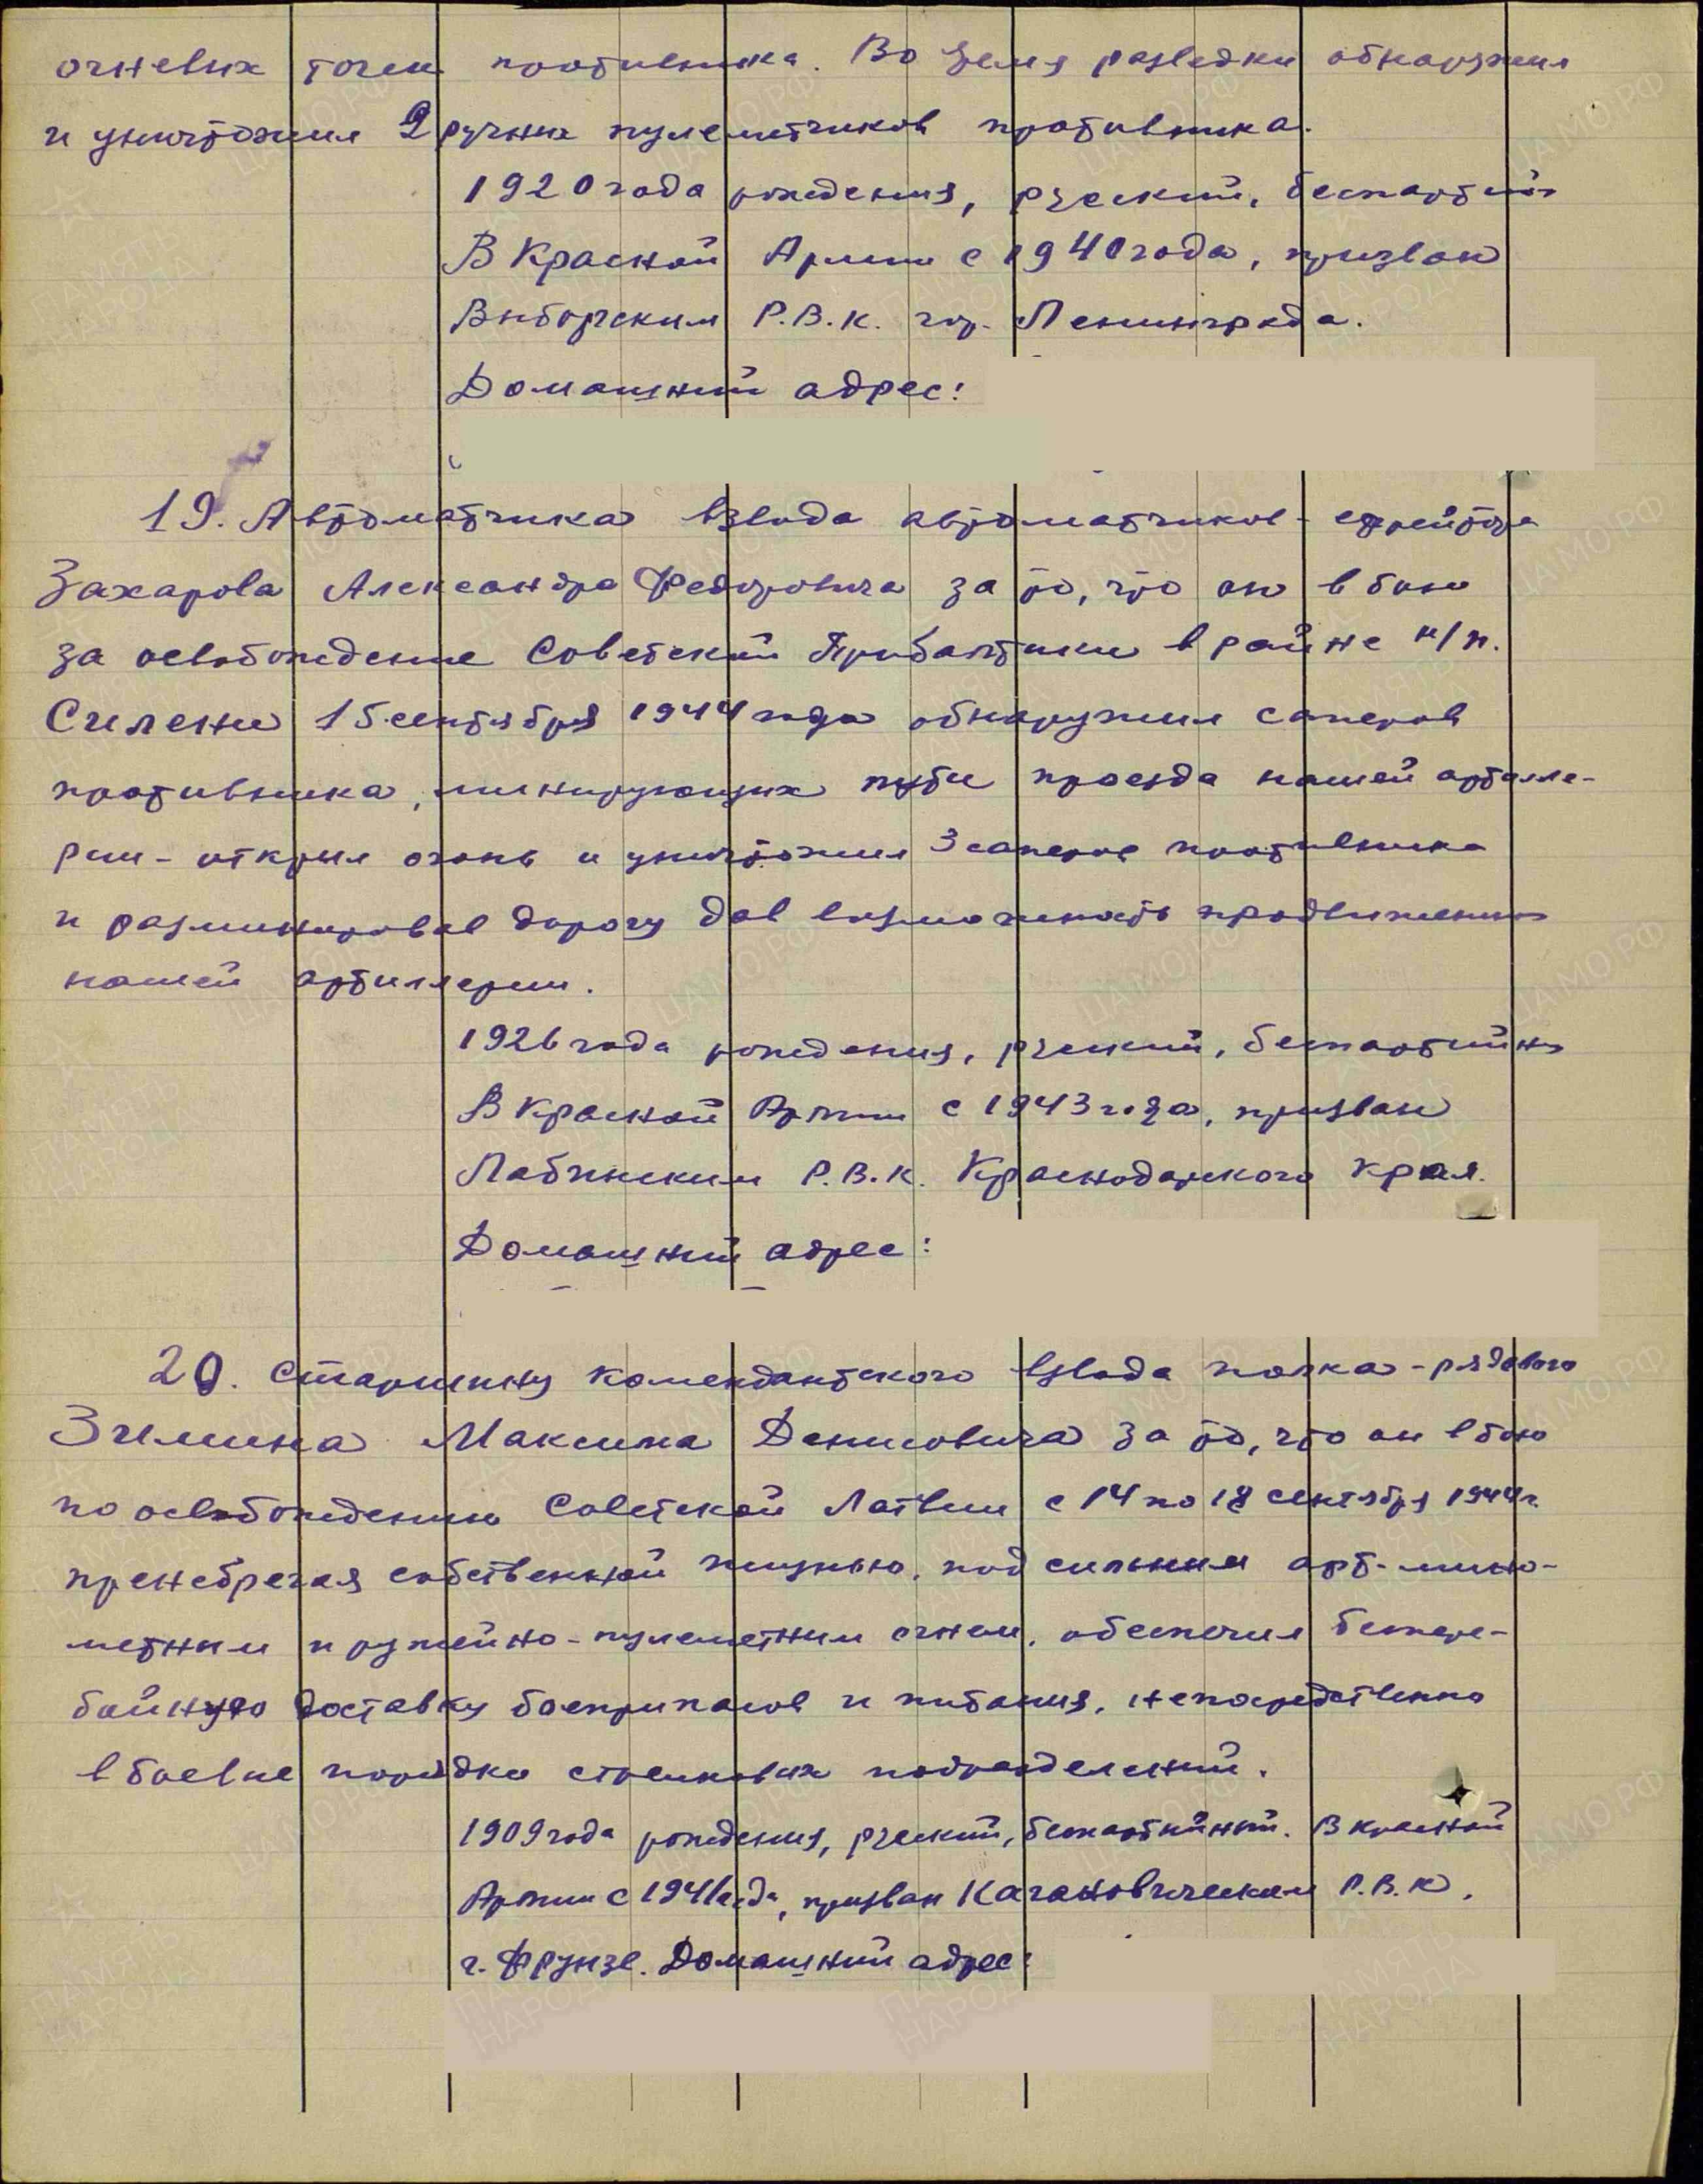 огневых точек противника. Во время разведки обнаружил
и уничтожил 2 ручных пулеметчиков противника.
1920 года рождения, русский, беспартийн
В Красной Армии с 1940 года, призван
Выборгским Р.В.К. гор. Ленинграда.
Домашний адрес:
19. Автоматчика взвода автоматчиков - ефрейтора
Захарова Александра Федоровича за то, что он в бою
за освобождение Советской Прибалтики в районе н/п.
Силени 15 сентября 1944 года обнаружил саперов
противника, минирующих пути проезда нашей артилле-
рии - открыл огонь и уничтожил 3 саперов противника
и разминировал дорогу дав возможность продвижению
нашей артиллерии.
1926 года рождения, русский, беспартийн
В Красной Армии с 1943 года, призван
Лабинским Р.В.К. Краснодарского края.
Домашний адрес:
20. Старшину комендантского взвода полка - рядового
Зимина Максима Денисовича за то, что он в бою
по освобождению Советской Латвии с 14 по 18 сентября 1944 г.
пренебрегая собственной жизнью, под сильным арт-мино-
метным и ружейно-пулеметным огнем, обеспечил бespere-
бойную доставку боеприпасов и питания, непосредственно
в боевые порядки стрелковых подразделений.
1909 года рождения, русский, беспартийный. В Красной
Армии с 1941 года, призван Кагановическим Р.В.К.
г. Фрунзе. Домашний адрес: